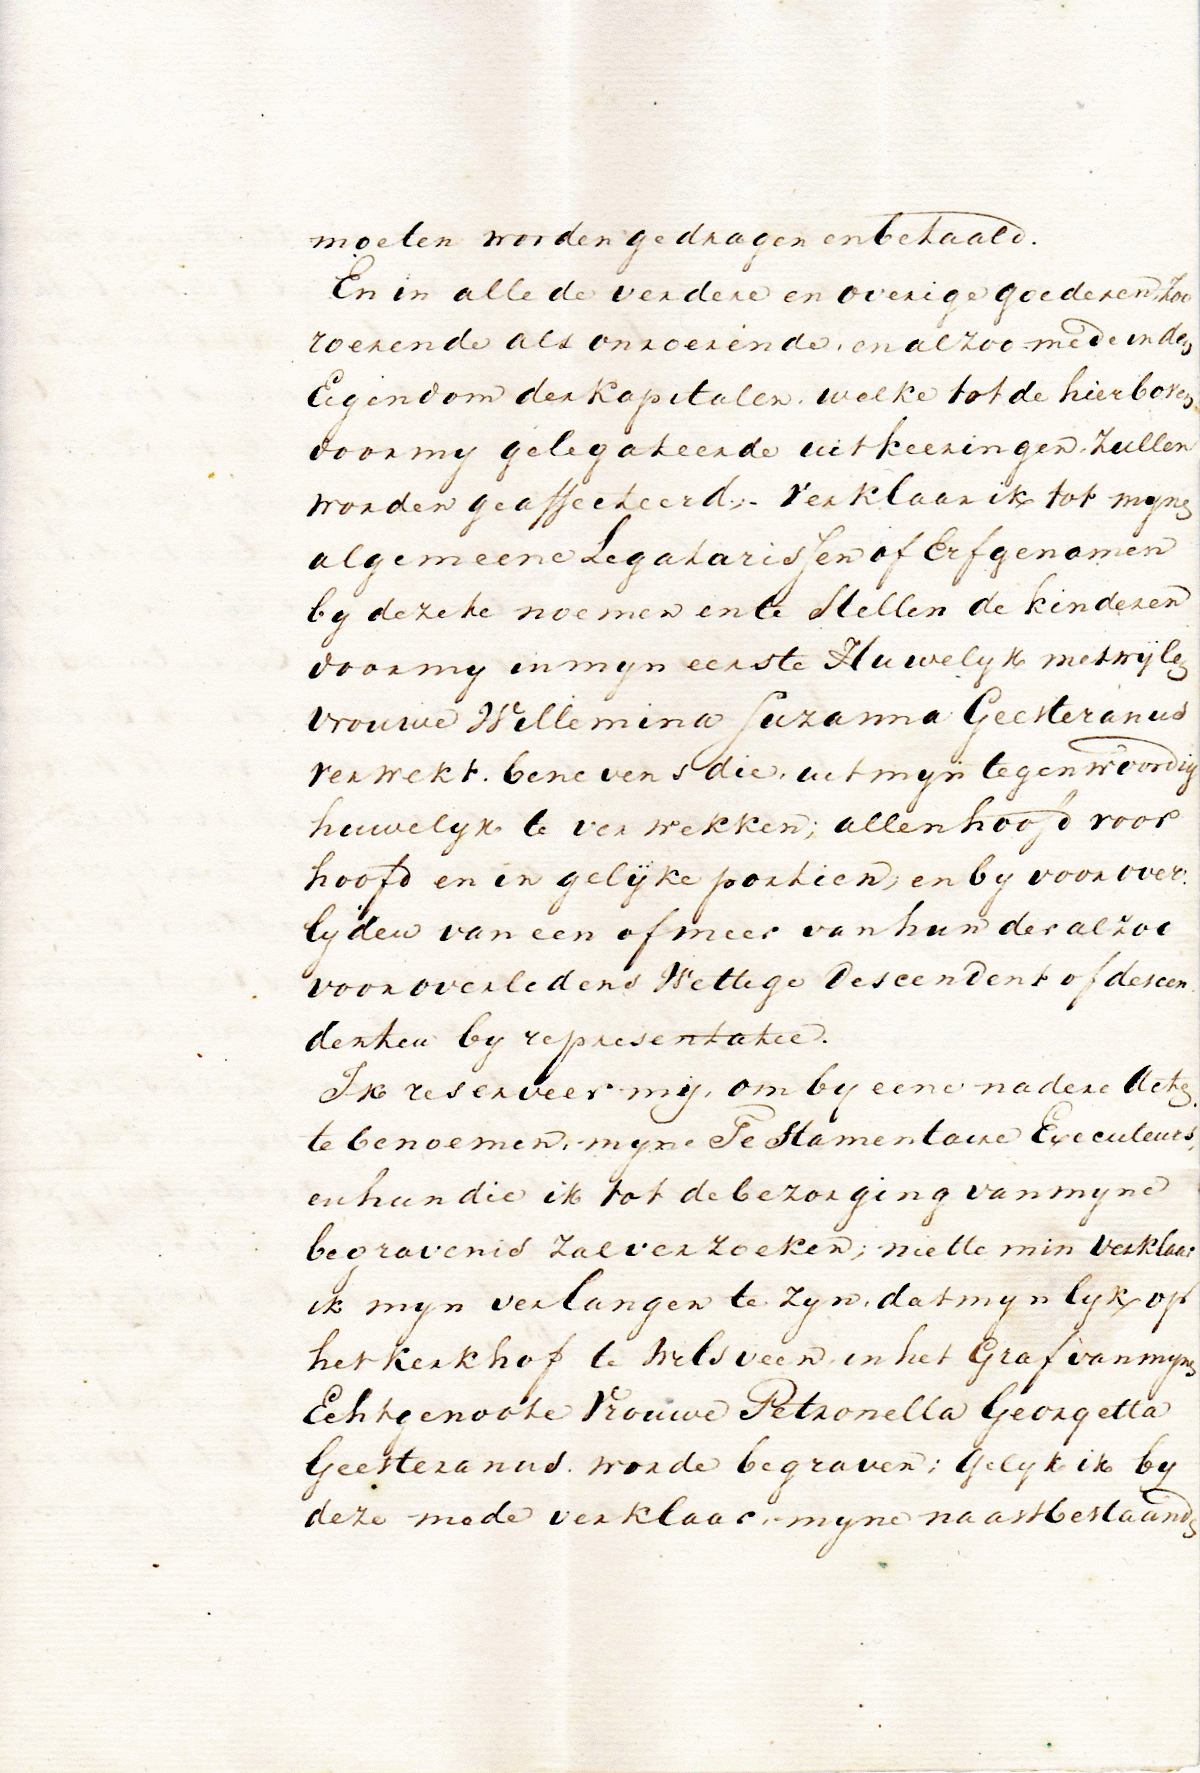 moeten worden gedragen en betaald.
En in alle de verdere en overige goederen, zoo
roerende als onroerende, en alzoo mede in den
Eigendom der Kapitalen, welke tot de hierboven
door my gelegateerde uitkeeringen, zullen
worden geaffecteerd;- verklaar ik tot myne
algemeene Legatarissen of Erfgenamen
by deze te noemen en te Stellen de kinderen
door my in myn eerste Huwelyk met wijlen
vrouwe Willemina Suzanna Geesteranus
verwekt. benevens die, uit myn tegenwoordig
huwelyk te verwekken; allen hoofd voor
hoofd en in gelijke portien, en by voorover-
lyden van een of meer van hun der alzoo
vooroverledens Wettige Descendent of descen-
denten by representatie.
Ik reserveer mij, om by eene nadere Acte,
te benoemen, myne Testamentaire Executeurs,
en hun die ik tot de bezorging van myne
begravenis zal verzoeken; niette min verklaar
ik myn verlangen te zyn, dat myn lyk op
het kerkhof te Wilsveen, in het Graf van myne
Echtgenoote Vrouwe Petronella Georgetta
Geesteranus. worde begraven; gelyk ik by
deze mede verklaar, myne naastbestaande